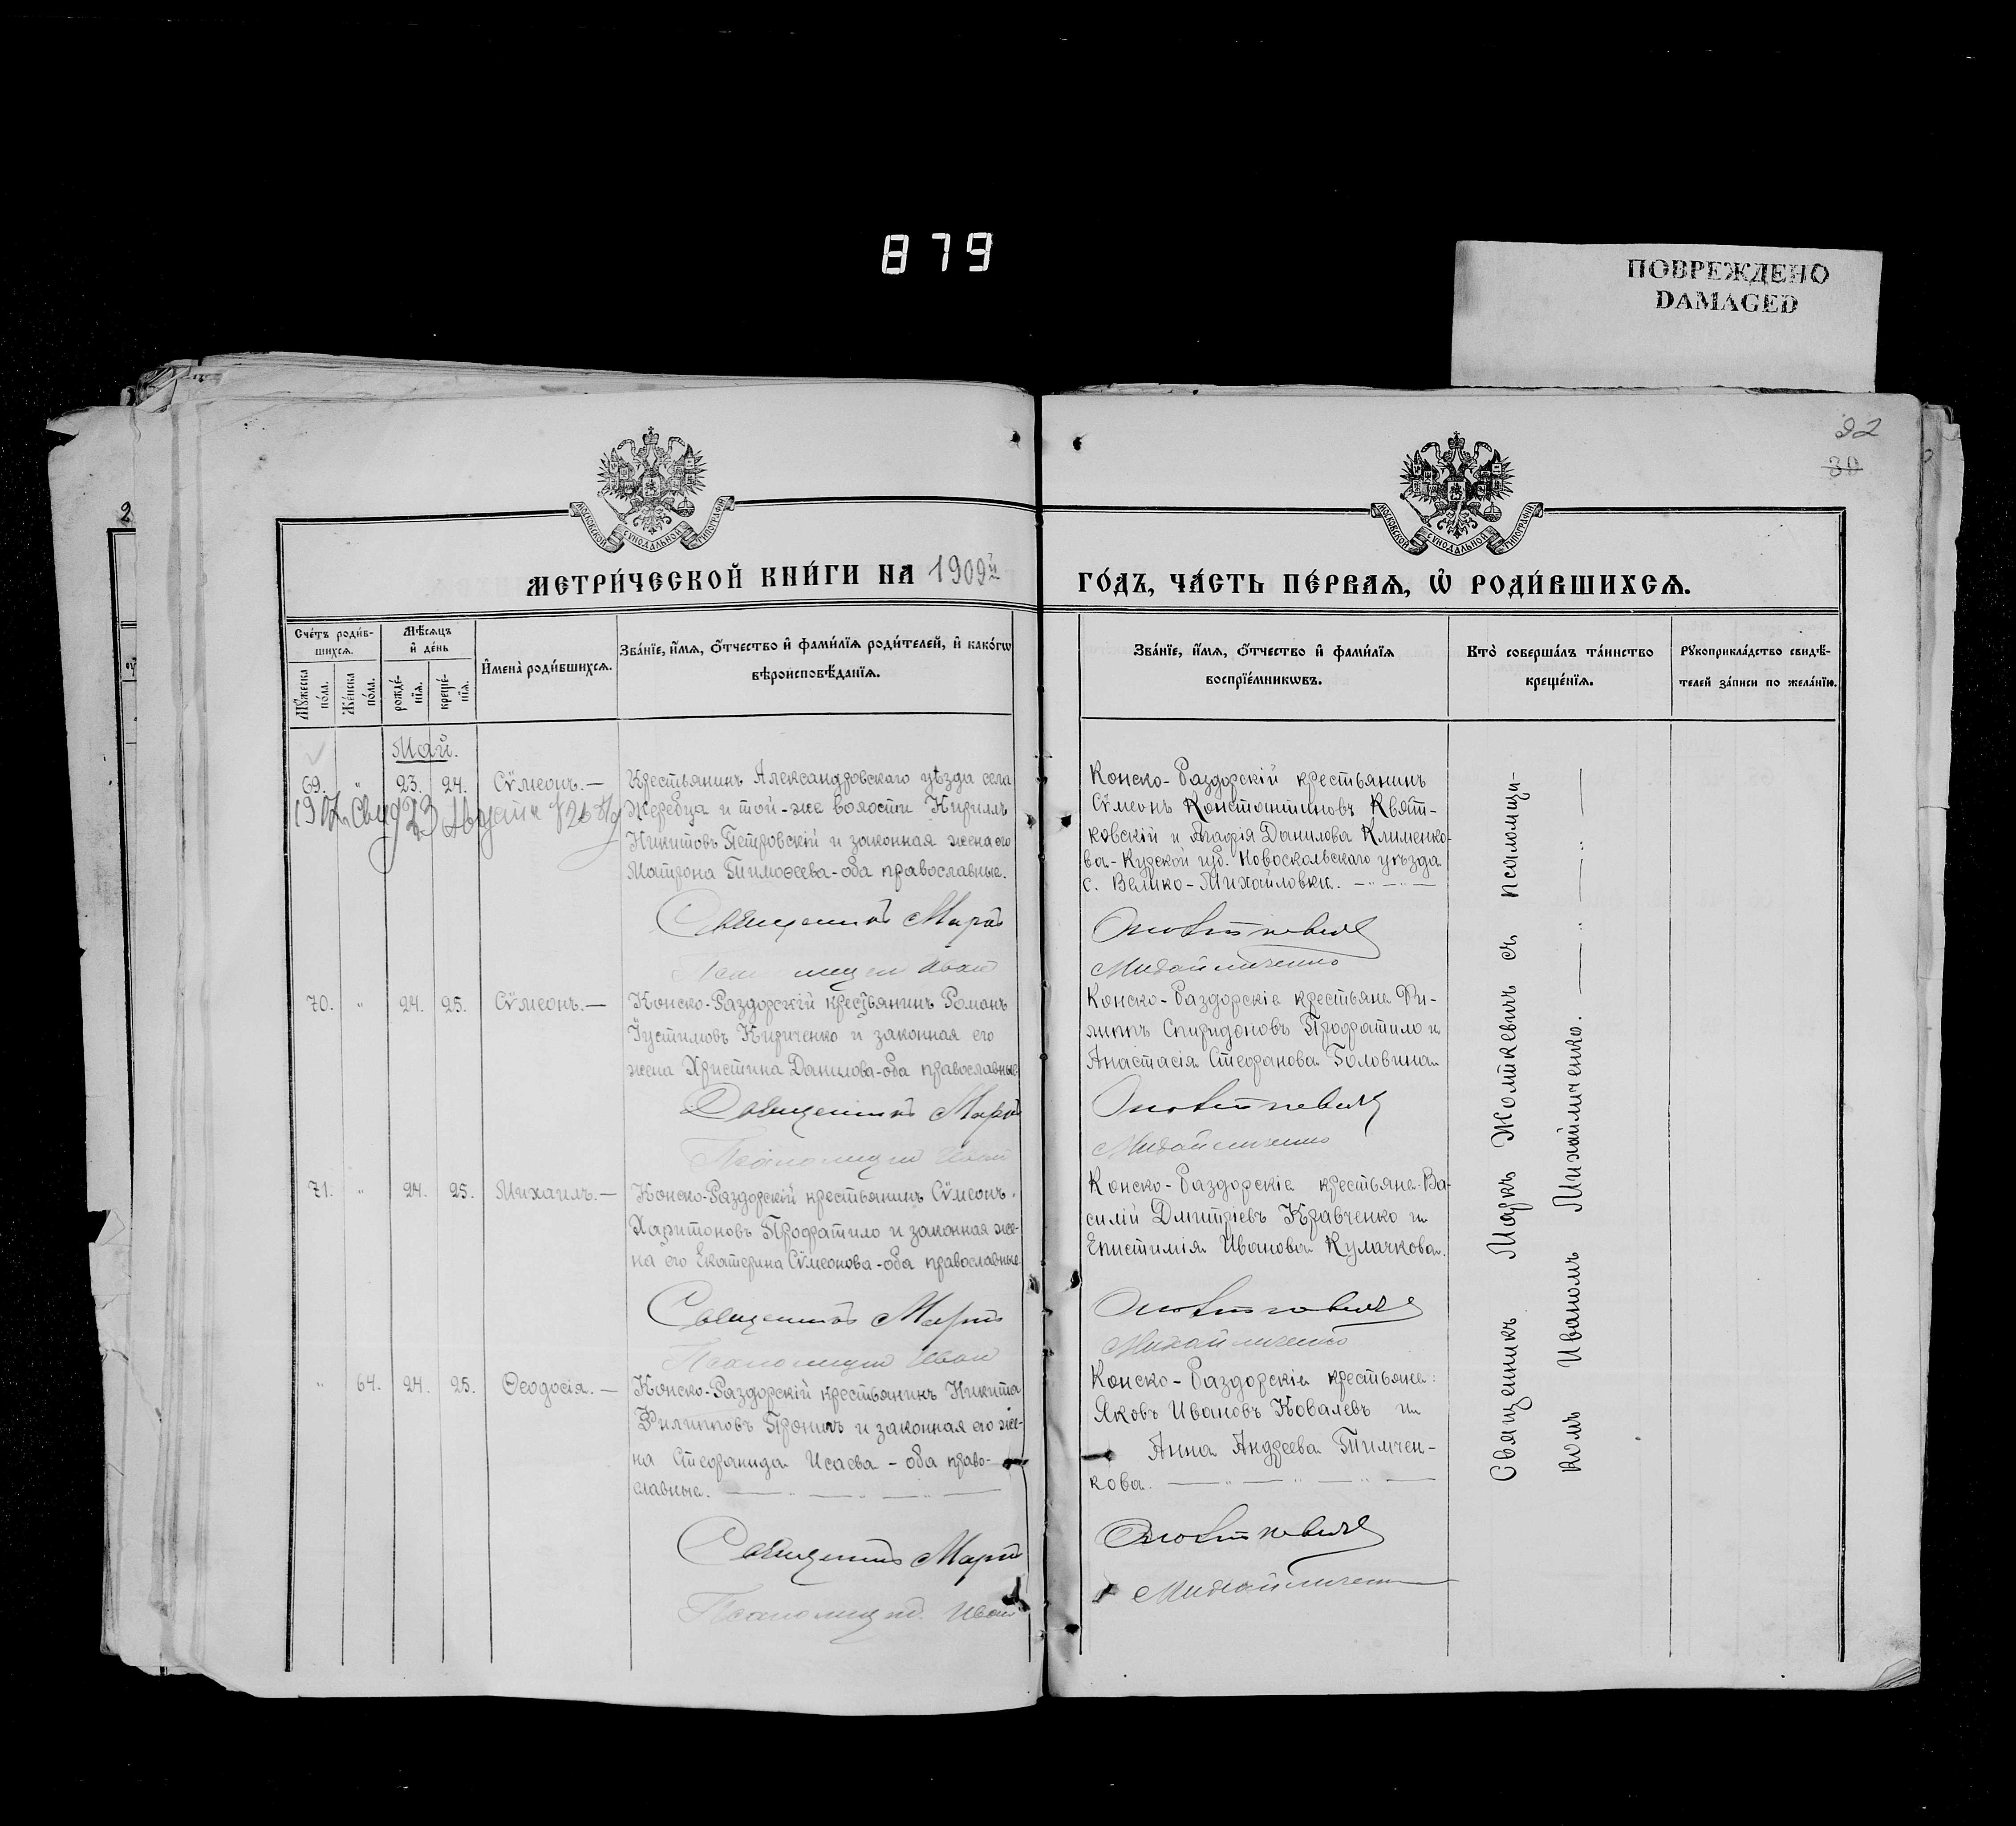 879
ПОВРЕЖДЕНО
DAMAGED
92
30
2
МОСКОВСКОЙ СѴНОДАЛЬНОЙ ТИПОГРАФІИ
МОСКОВСКОЙ СѴНОДАЛЬНОЙ ТИПОГРАФІИ
МЕТРИ́ЧЕСКОЙ КНИ́ГИ НА 1909й
ГО́ДЪ, ЧА́СТЬ ПЕ́РВАѦ, Ѡ҆ РОДИ́ВШИХСѦ.
Сче́тъ роди́в-
шихсѧ.
Мꙋ́жеска
по́ла.
Же́нска
по́ла.
Мѣ́сѧцъ
и҆ де́нь
рожде́-
нїѧ.
креще́-
нїѧ.
И҆мена̀ роди́вшихсѧ.
Зва́нїе, и҆́мѧ, ѻ҆́тчество и҆ фами́лїѧ роди́телей, и҆ како́гѡ
вѣроисповѣ́данїѧ.
Зва́нїе, и҆́мѧ, ѻ҆́тчество и҆ фами́лїѧ
воспрїе́мникѡвъ.
Кто̀ соверша́лъ та́инство
креще́нїѧ.
Рꙋкоприкла́дство свидѣ́-
телей за́писи по жела́нїю.
Май.
69. " 23. 24. Сѵмеонъ.—
Крестьянинъ Александровскаго уѣзда села
Жеребца и той-же волости Кириллъ
Никитовъ Петровскій и законная жена его
Матрона Тимоѳеева-оба православные.
Священникъ Маркъ
Псаломщик Иван
Конско-Раздорскій крестьянинъ
Сѵмеонъ Константиновъ Квят-
ковскій и Агафія Данилова Клименко-
ва-Курской губ. Новоскольскаго уѣзда
с. Велико-Михайловки.
Жолткевичъ
Михайличенко
70. " 24. 25. Сѵмеонъ.—
Конско-Раздорскій крестьянинъ Романъ
Іустиновъ Кириченко и законная его
жена Христина Данилова-оба православные.
Священникъ Маркъ
Псаломщик Иван
Конско-Раздорскіе крестьяне Фи-
липпъ Спиридоновъ Профатило и
Анастасія Стефанова Головина
Жолткевичъ
Михайличенко
71. " 24. 25. Михаилъ.—
Конско-Раздорскій крестьянинъ Сѵмеонъ
Харитоновъ Профатило и законная же-
на его Екатерина Сѵмеонова-оба православные
Священникъ Маркъ
Псаломщик Иван
Конско-Раздорскіе крестьяне Ва-
силій Дмитріевъ Кравченко и
Епистимія Иванова Кулачкова.
Жолткевичъ
Михайличенко
" 64. 24. 25. Ѳеодосія.—
Конско-Раздорскій крестьянинъ Никита
Филипповъ Пронинъ и законная его же-
на Стефанида Исаева - оба право-
славные.
Священникъ Маркъ
Псаломщик Иван
Конско-Раздорскіе крестьяне:
Яковъ Ивановъ Ковалевъ и
Анна Андреева Тимчен-
кова.
Жолткевичъ
Михайличенко
Священникъ Маркъ Жолткевичъ съ псаломщи-
комъ Иваномъ Михайличенко.